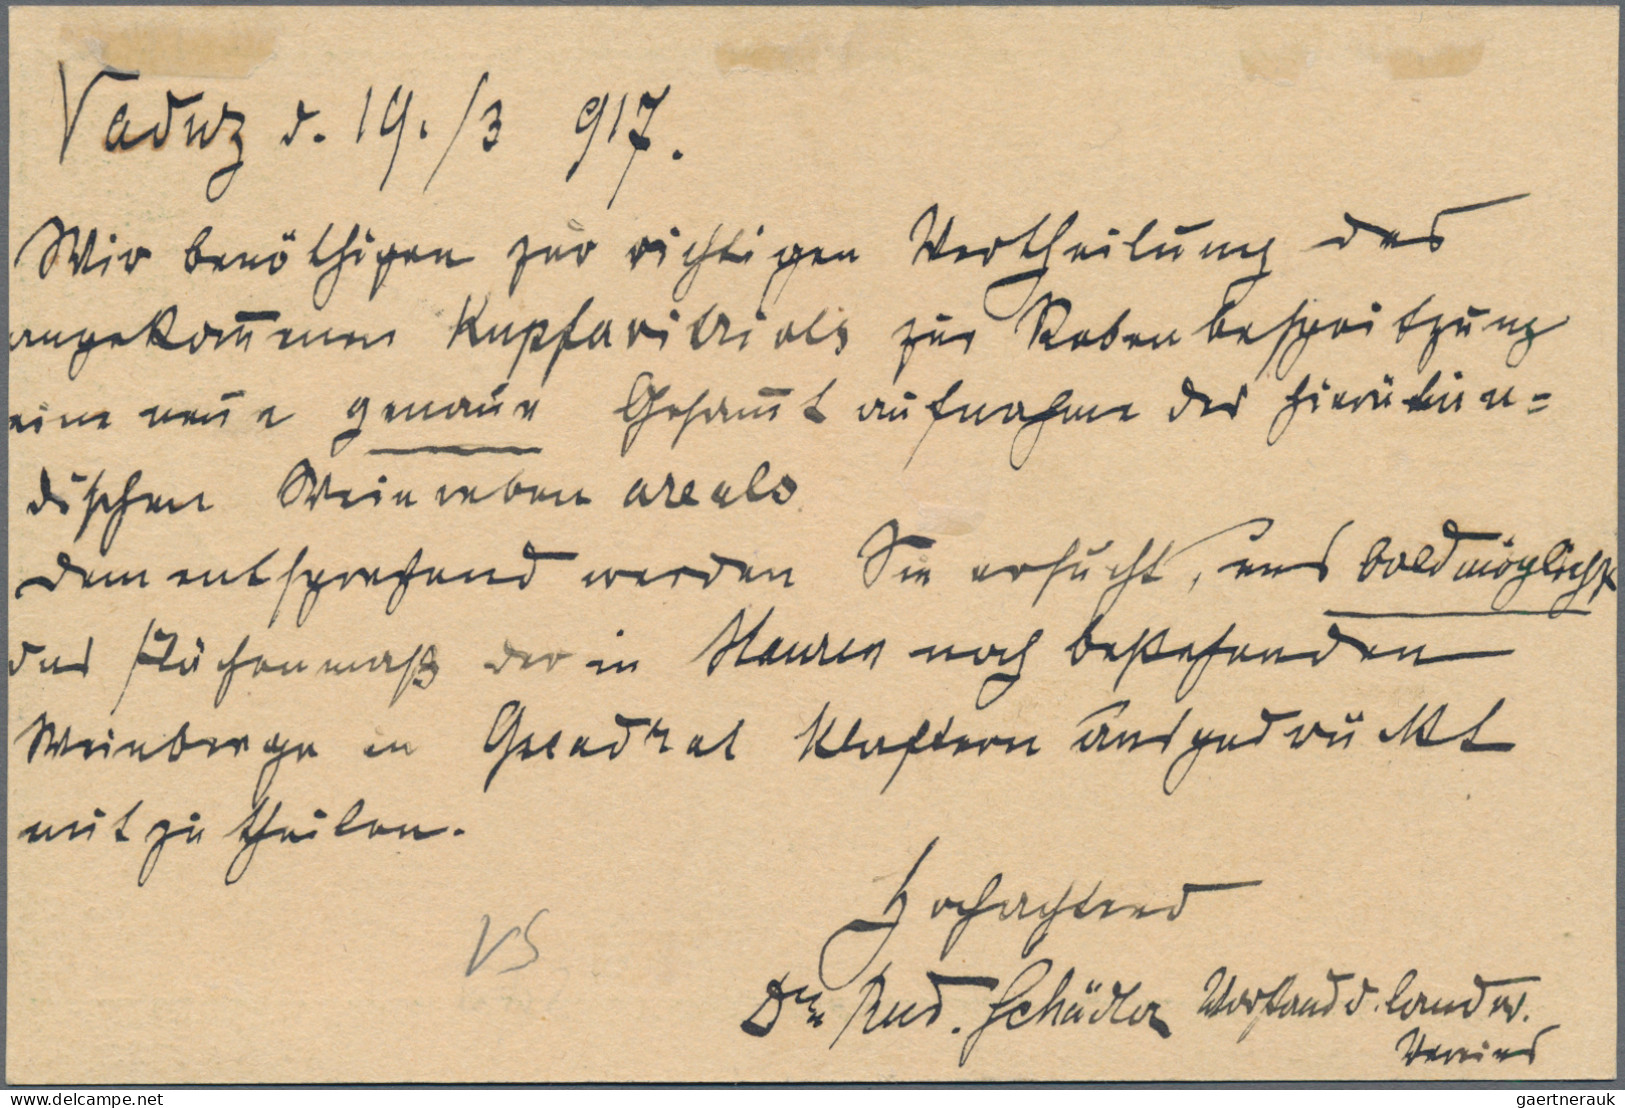 Vaduz d. 19./3 917.
Wir benöthigen zur richtigen Vertheilung des
angekommenen Kupfervitriols zur Rebenbespritzung
eine neue genaue Gesammtaufnahme der hierlän=
dischen Weinreben areals
dementsprechend werden Sie ersucht, uns baldmöglichst
das Flächenmaß der in Mauren noch bestehenden
Weinberge in Quadrat Klaftern ausgedrückt
mitzutheilen.
Hochachtend
VS
Dr Rud. Schädler Vorstand d. landw.
Vereines
delcampe.net
gaertnerauk